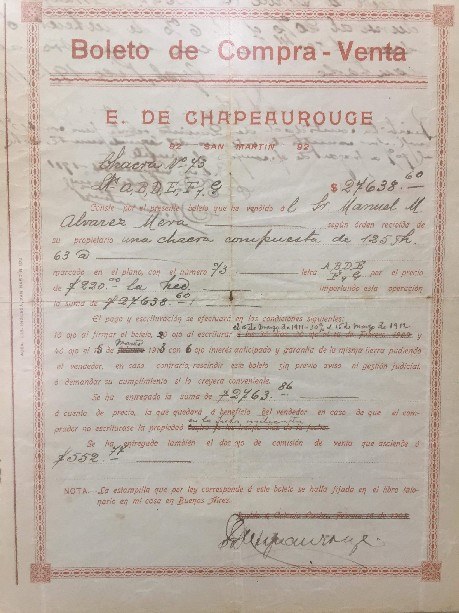 Boleto de Compra-Venta
E. DE CHAPEAUROUGE
92 SAN MARTIN 92
Chacra Nº 73
A, B, D, E, F, G $ 27638.60
Conste por el presente boleto que he vendido al Sr Manuel M.
Alvarez Mera según orden recibida de
su propietario una chacra compuesta de 125 h.
63 a
marcado en el plano con el número 73 letra A B D E F G por el precio
de $ 220.00 la hec importando esta operación
la suma de $ 27638.60
El pago y escrituración se efectuará en las condiciones siguientes:
10 o/o al firmar el boleto, 20 o/o al escriturar el 15 de Marzo de 1911 - 30% el 15 de Marzo de 1912
y 40 o/o el 15 de Marzo 1913 con 6 o/o interés anticipado y garantía de la misma tierra pudiendo
el vendedor, en caso contrario, rescindir este boleto sin previo aviso ni gestión judicial
ó demandar su cumplimiento si lo creyera conveniente.
Se ha entregado la suma de $ 2763.86
á cuenta de precio, la que quedará á beneficio del vendedor en caso de que el com-
prador no escriturase la propiedad en la fecha
Se ha entregado también el dos de comisión de venta que asciende á
$ 552.77
NOTA. La estampilla que por ley corresponde á este boleto se halla fijada en el libro talo-
nario en mi casa en Buenos Aires.
E. de Chapeaurouge